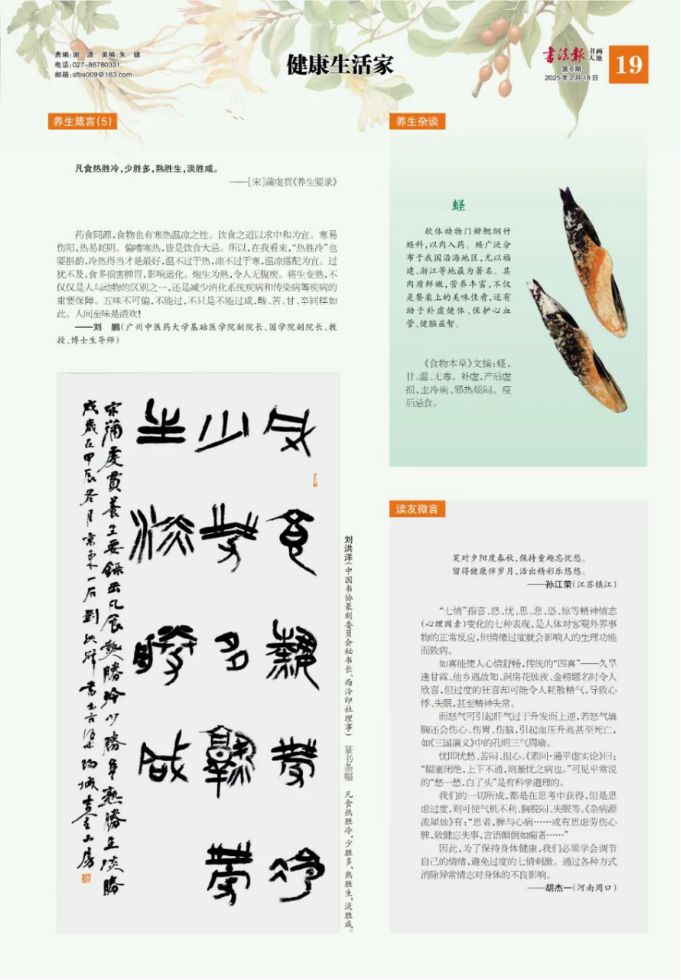 责编:谢 潇 美编:朱 婕
电话:027-86780331
邮箱:sfbs009@163.com
健康生活家
书法报 书画天地
第6期
2025年2月18日
19
养生箴言(5)
凡食热胜冷,少胜多,熟胜生,淡胜咸。
——[宋]蒲虔贯《养生要录》
药食同源,食物也有寒热温凉之性。饮食之道以求中和为宜。寒易
伤阳,热易耗阴。偏嗜寒热,皆是饮食大忌。所以,在我看来,“热胜冷”也
要斟酌,冷热得当才是最好,温不过于热,凉不过于寒,温凉搭配为宜。过
犹不及,食多损害脾胃,影响运化。炮生为熟,令人无腹疾。将生变熟,不
仅仅是人与动物的区别之一,还是减少消化系统疾病和传染病等疾病的
重要保障。五味不可偏,不能过,不只是不能过咸,酸、苦、甘、辛同样如
此。人间至味是清欢!
——刘 鹏(广州中医药大学基础医学院副院长、国学院副院长、教
授、博士生导师)
凡食热胜冷
少胜多熟胜
生淡胜咸
宋蒲虔贯养生要录云凡食热胜冷少胜多熟胜生淡胜
咸岁在甲辰冬月
刘洪洋(中国书协篆刻委员会秘书长、西泠印社理事) 篆书条幅 凡食热胜冷,少胜多,熟胜生,淡胜咸。
养生杂谈
蛏
软体动物门瓣鳃纲竹
蛏科,以肉入药。蛏广泛分
布于我国沿海地区,尤以福
建、浙江等地最为著名。其
肉质鲜嫩,营养丰富,不仅
是餐桌上的美味佳肴,还有
助于补虚健体、保护心血
管、健脑益智。
《食物本草》文摘:蛏,
甘、温、无毒。补虚,产后虚
损,主冷痢、邪热烦闷。疫
后忌食。
读友微言
笑对夕阳度春秋,保持童趣忘忧愁。
留得健康伴岁月,活出精彩乐悠悠。
——孙江荣(江苏镇江)
“七情”指喜、怒、忧、思、悲、恐、惊等精神情志
(心理因素)变化的七种表现,是人体对客观外界事
物的正常反应,但情绪过度就会影响人的生理功能
而致病。
如喜能使人心情舒畅,传统的“四喜”——久旱
逢甘霖、他乡遇故知、洞房花烛夜、金榜题名时令人
欣喜,但过度的狂喜却可能令人耗散精气,导致心
悸、失眠,甚至精神失常。
而怒气可引起肝气过于升发而上逆,若怒气填
胸还会伤心、伤胃、伤脑,引起血压升高甚至死亡,
如《三国演义》中的孔明三气周瑜。
忧即忧愁、苦闷、担心。《素问·通平虚实论》曰:
“膈塞闭绝,上下不通,则暴忧之病也。”可见平常说
的“愁一愁,白了头”是有科学道理的。
我们的一切所成,都是在思考中获得,但是思
虑过度,则可使气机不利、胸脘闷、失眠等。《杂病源
流犀烛》有:“思者,脾与心病……或有思虑劳伤心
脾,致健忘失事,言语颠倒如痴者……”
因此,为了保持身体健康,我们必须学会调节
自己的情绪,避免过度的七情刺激。通过各种方式
消除异常情志对身体的不良影响。
——胡杰一(河南周口)